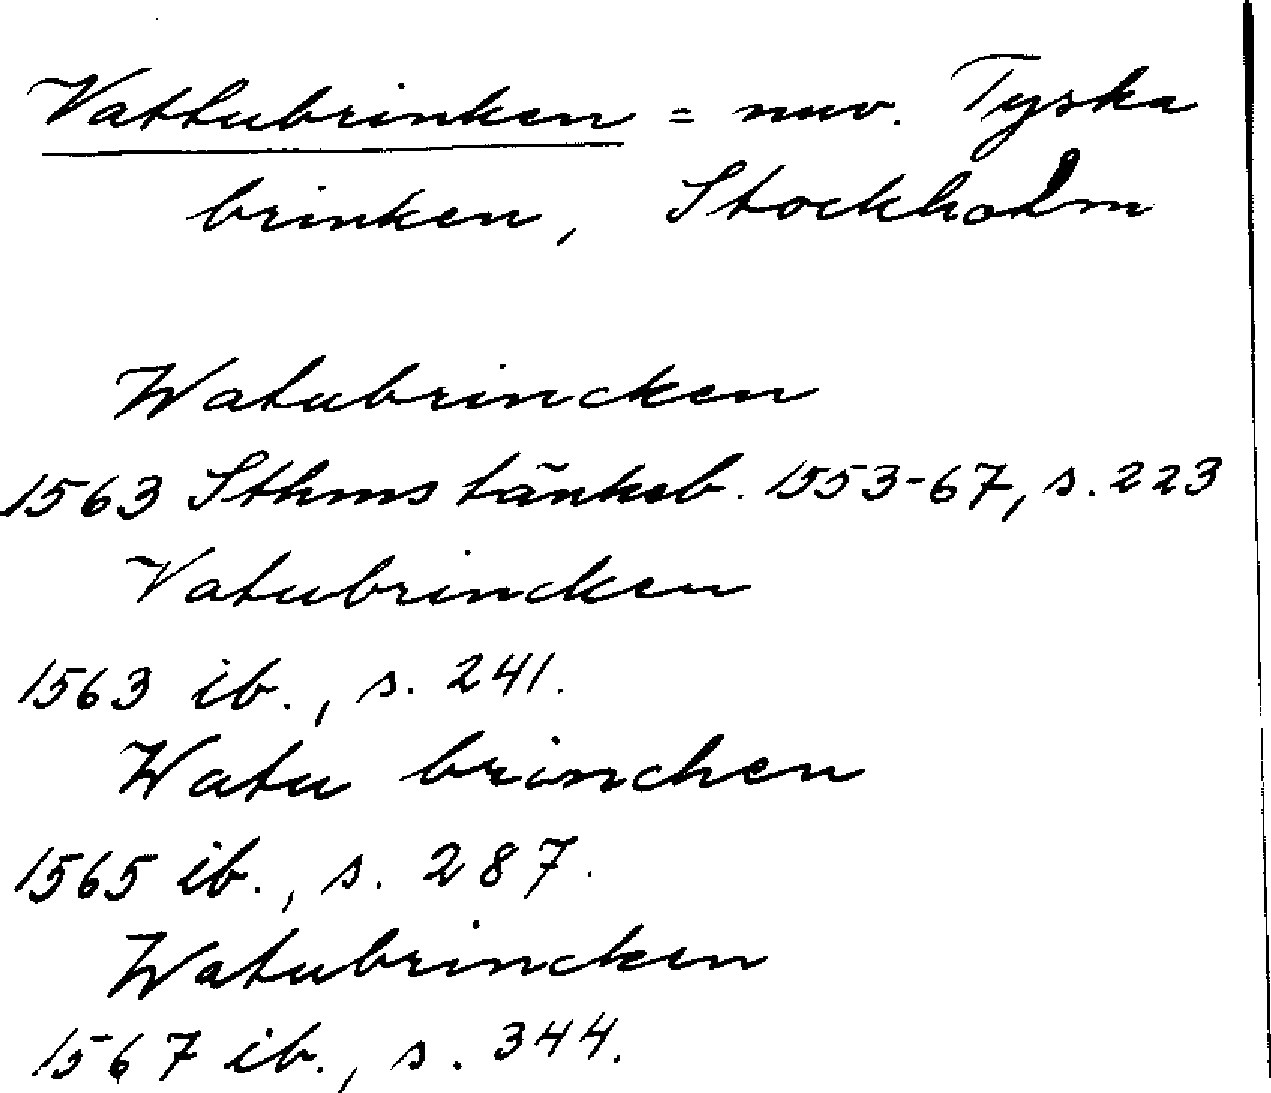 Vattubrinken = nuv. Tyska
brinken, Stockholm
Watubrincken
1563 Sthms tänkeb. 1553-67, s. 223
Vatubrincken
1563 ib., s. 241.
Watu brinchen
1565 ib., s. 287.
Watubrincken
1567 ib., s. 344.